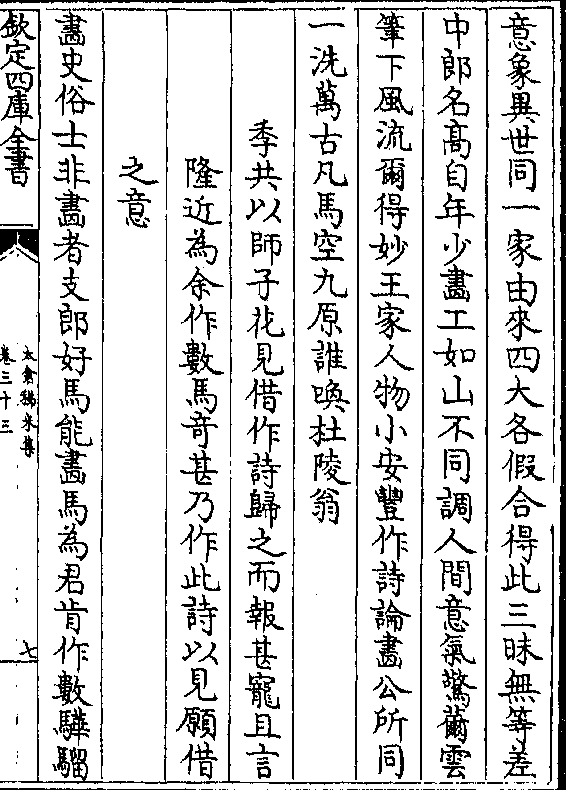 意象異世同一家由來四大各假合得此三昧無等差
中郎名髙自年少畫工如山不同調人間意氣驚薾雲
筆下風流爾得妙王家人物小安豐作詩論畫公所同
一洗萬古凡馬空九原誰喚杜陵翁
季共以師子花見借作詩歸之而報甚寵且言
隆近為余作數馬竒甚乃作此詩以見願借
之意
畫史俗士非畫者支郎好馬能畫馬為君肯作數驊騮
欽定四庫全書
太倉稊米集
卷三十三
七